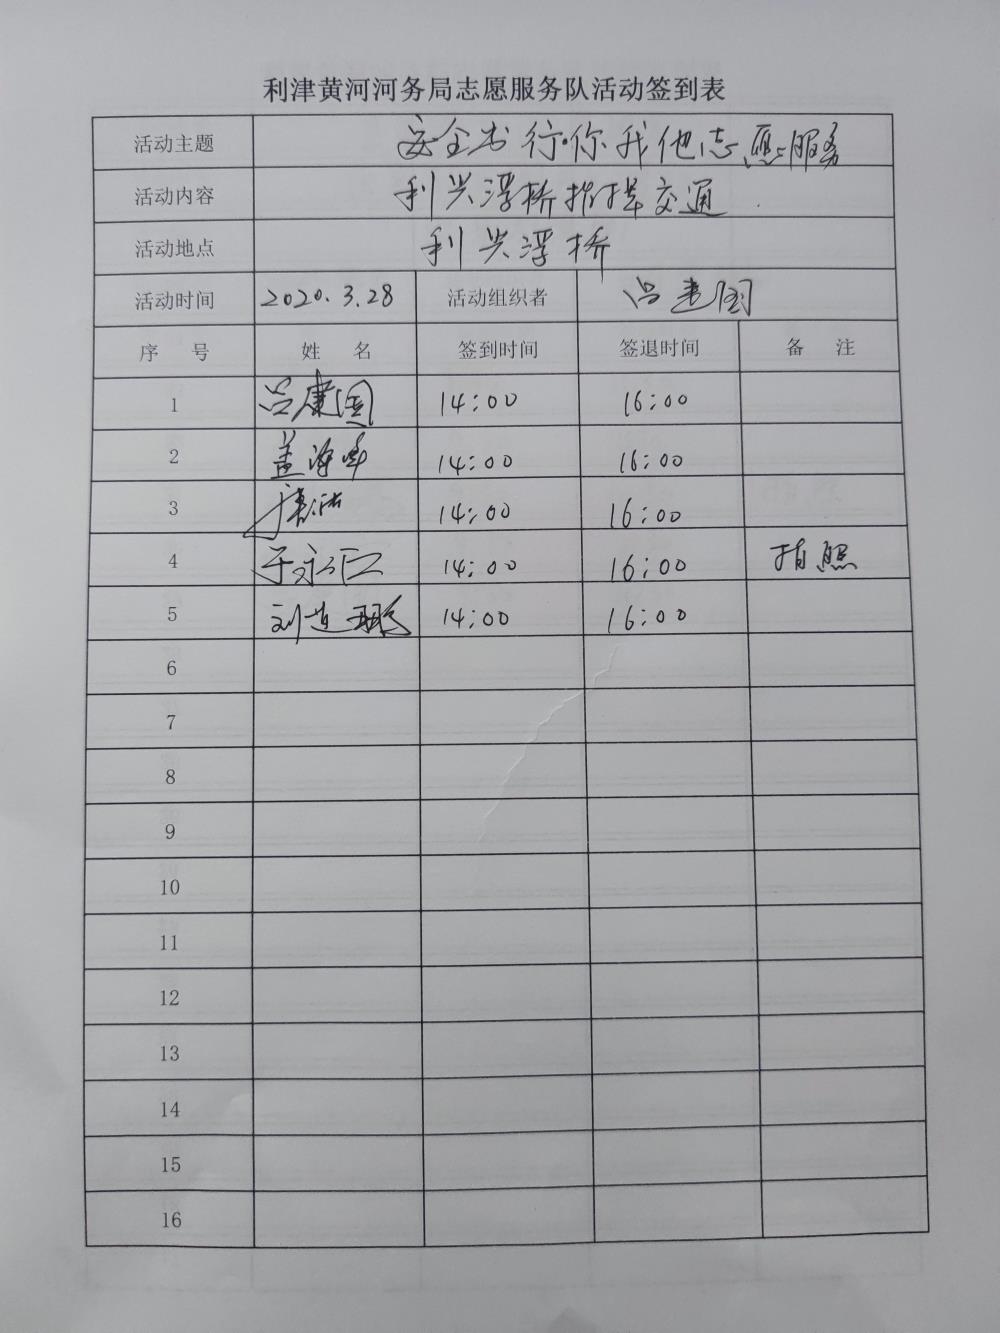 利津黄河河务局志愿服务队活动签到表
活动主题 安全出行·你我他志愿服务
活动内容 利兴浮桥指挥交通
活动地点 利兴浮桥
活动时间 2020.3.28 活动组织者 吕建国
序 号 姓 名 签到时间 签退时间 备 注
1 吕建国 14:00 16:00
2 盖海峰 14:00 16:00
3 14:00 16:00
4 于永江 14:00 16:00 拍照
5 刘连鹏 14:00 16:00
6
7
8
9
10
11
12
13
14
15
16